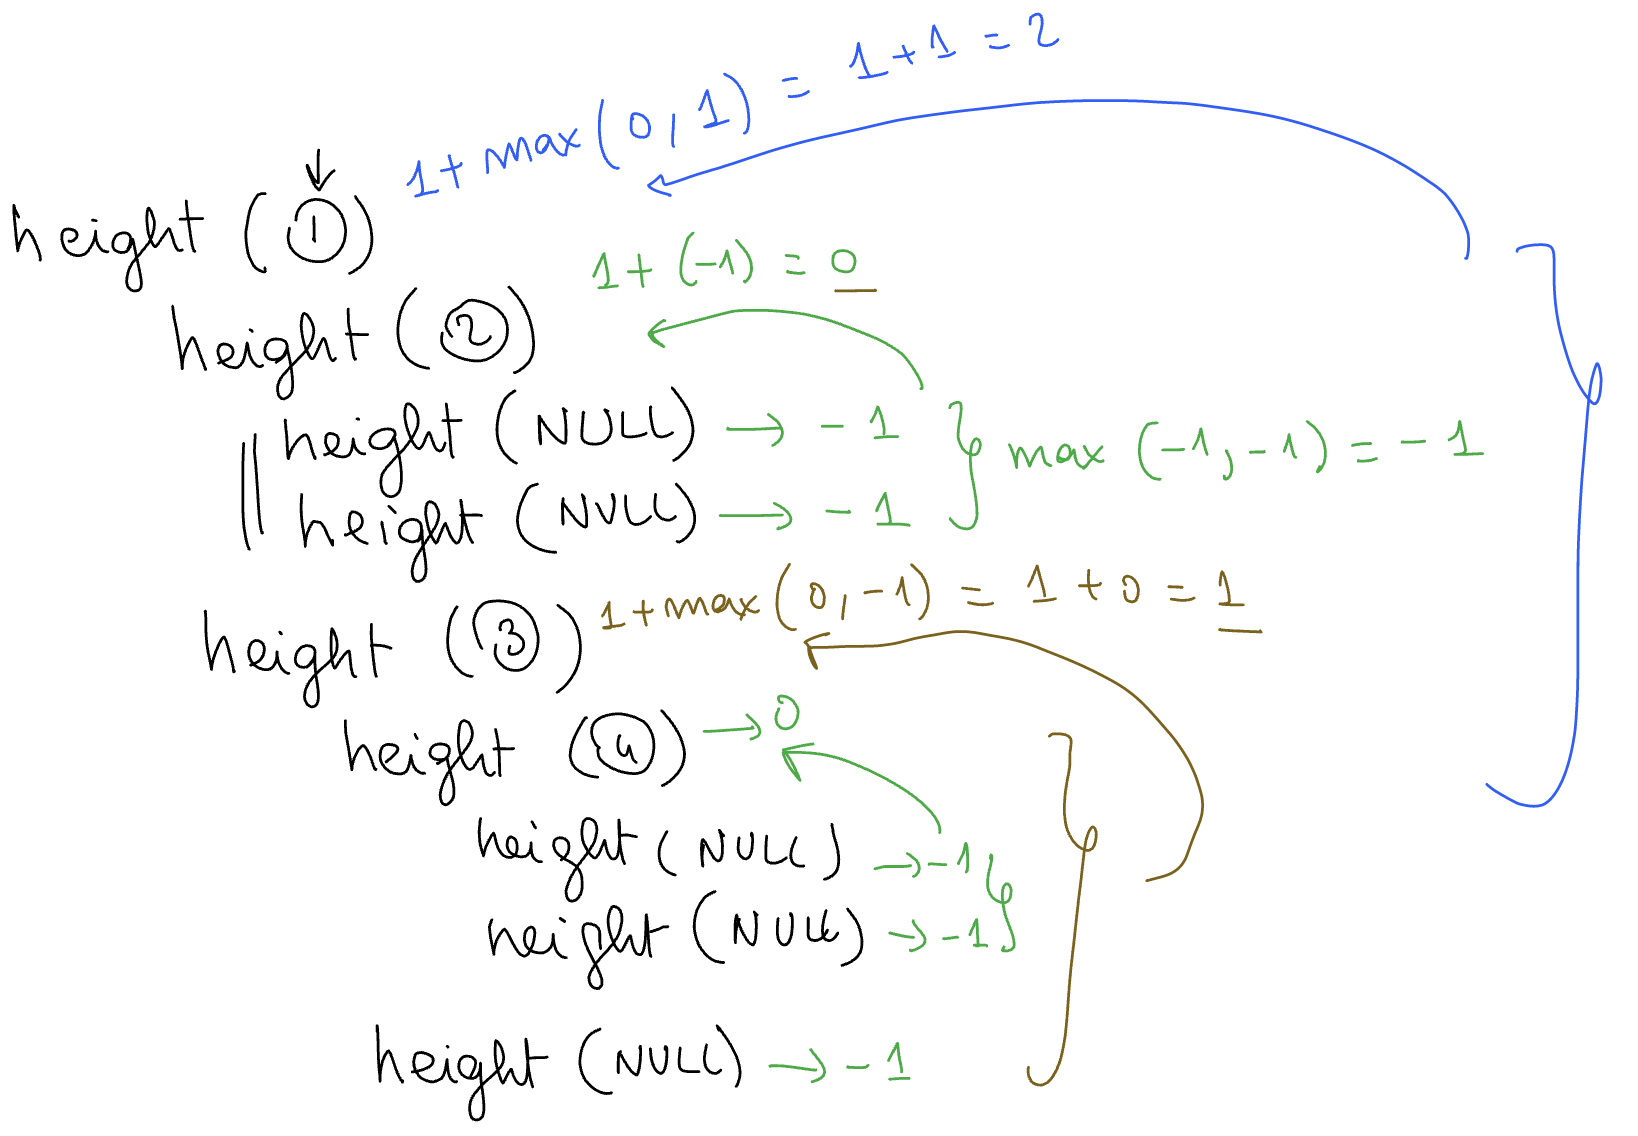 1+ max(0,1) = 1+1 = 2
height (1)
1+ (-1) = 0
height (2)
height (NULL) → -1
max (-1,-1) = -1
height (NULL) → -1
height (3) 1+max(0,-1) = 1+0 = 1
height (4) → 0
height (NULL) → -1
height (NULL) → -1
height (NULL) → -1